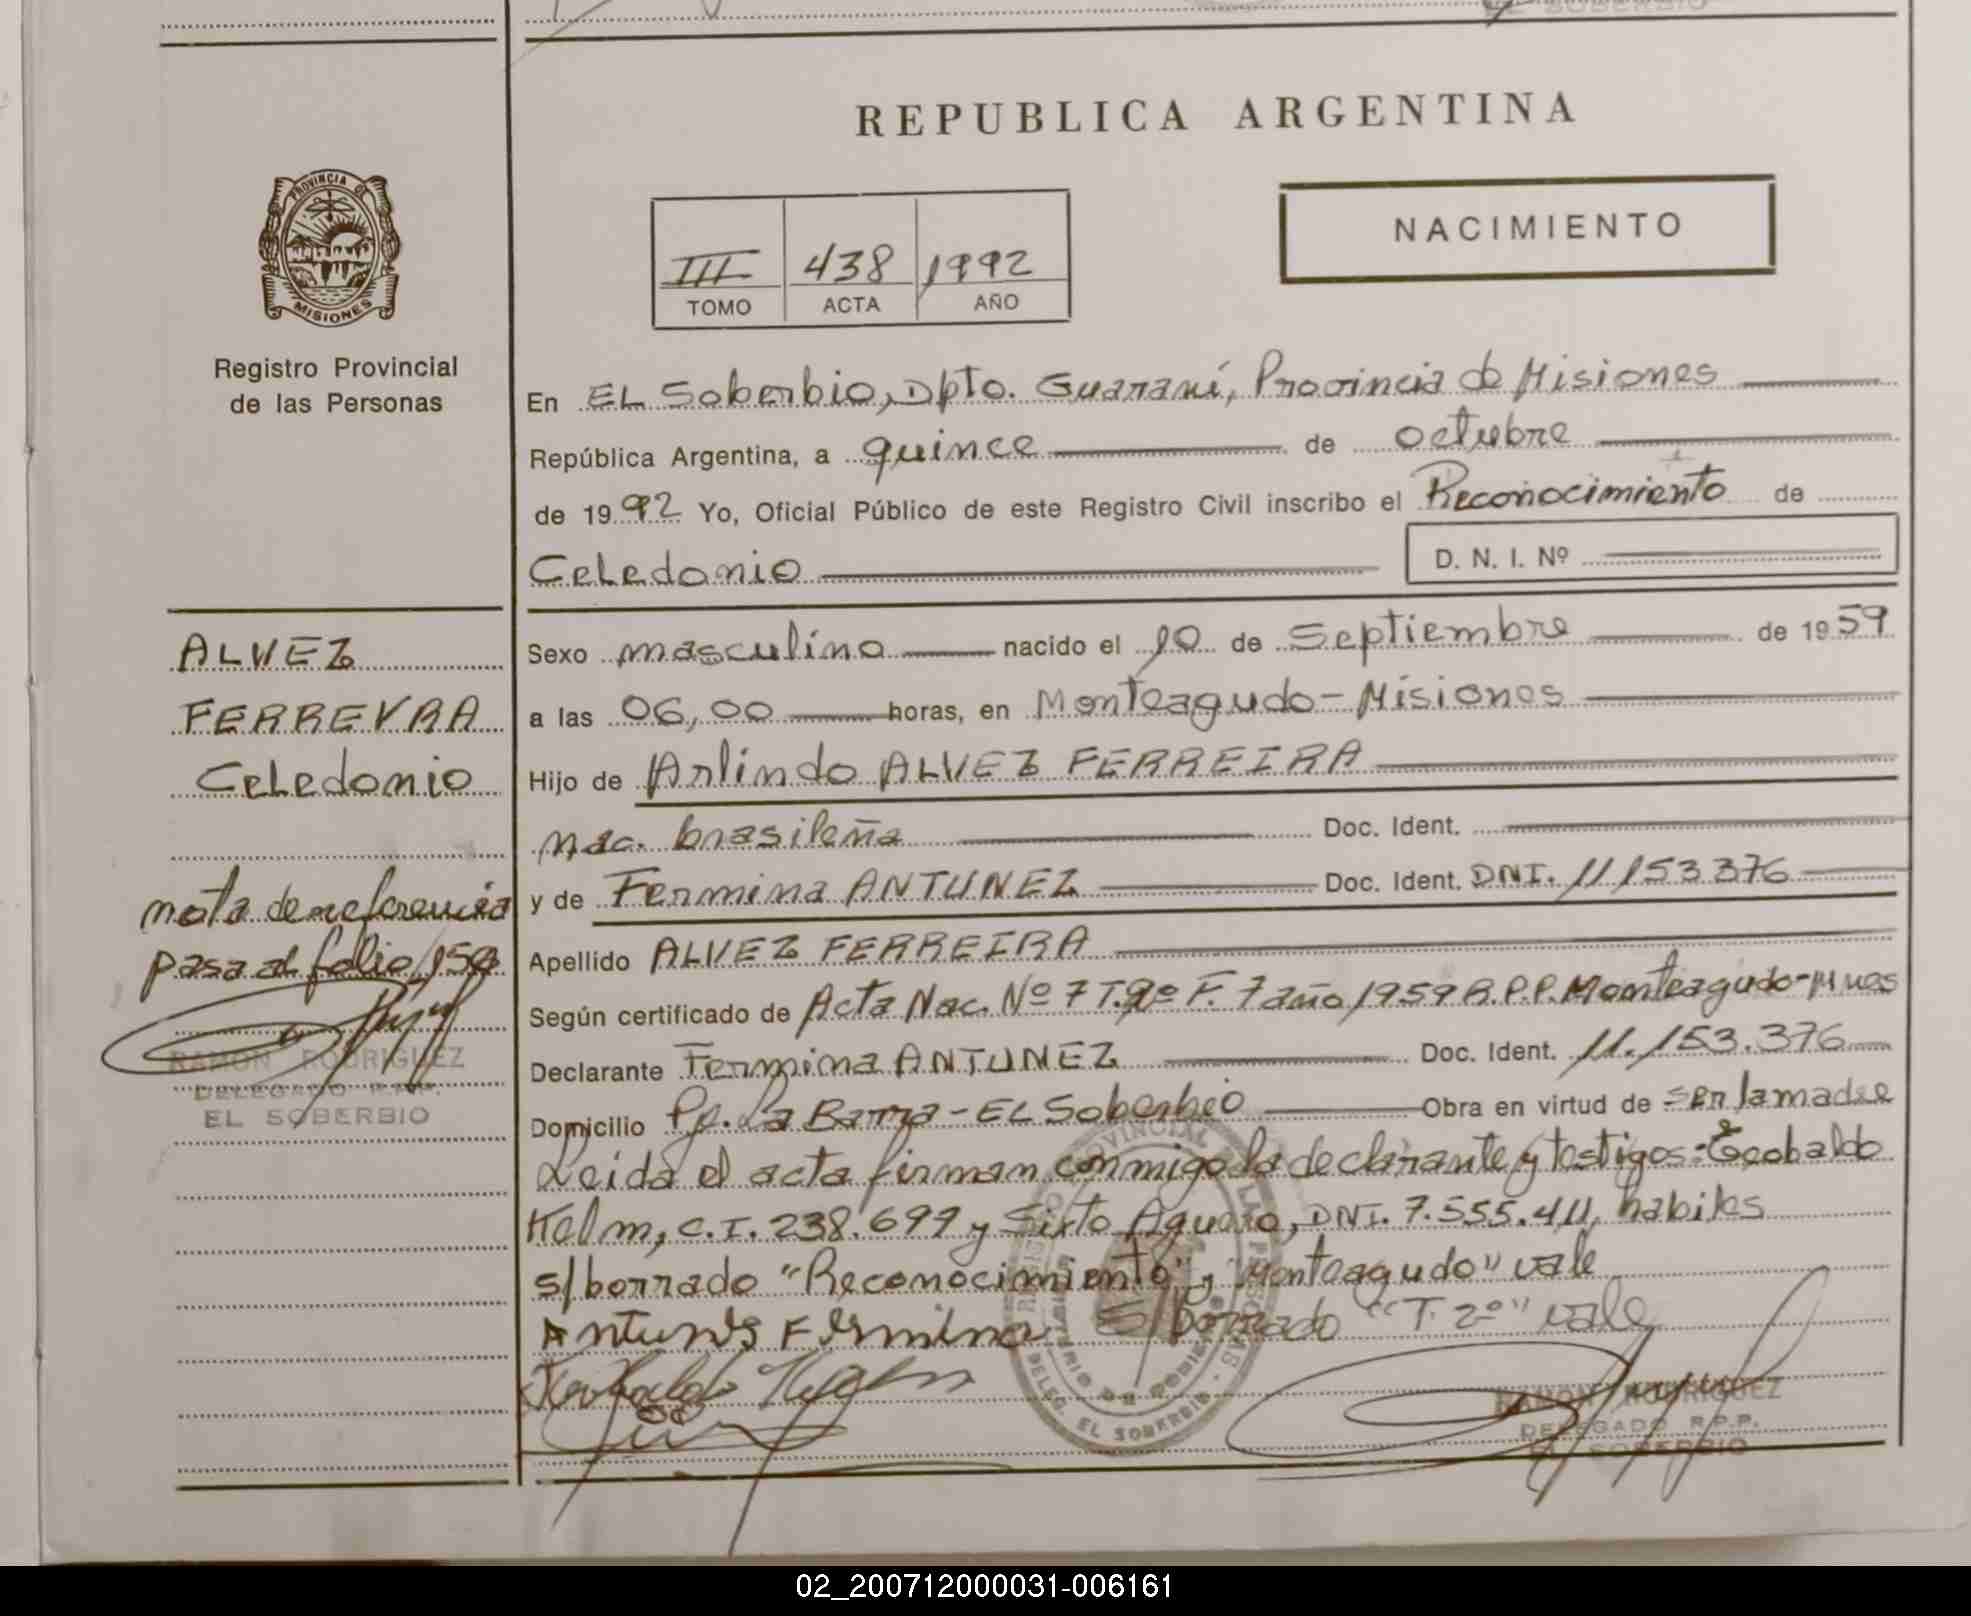 EL SOBERBIO
REPUBLICA ARGENTINA
PROVINCIA DE
MISIONES
Registro Provincial
de las Personas
III 438 1992
TOMO ACTA AÑO
NACIMIENTO
En EL Soberbio, Dpto. Guaraní, Provincia de Misiones
República Argentina, a quince de octubre
de 1992 Yo, Oficial Público de este Registro Civil inscribo el Reconocimiento de
Celedonio D. N. I. Nº
ALVEZ
FERREYRA
Celedonio
nota de referencia
pasa al folio 150
RAMON RODRIGUEZ
DELEGADO R.P.P.
EL SOBERBIO
Sexo masculino nacido el 10 de Septiembre de 1959
a las 06,00 horas, en Monteagudo - Misiones
Hijo de Arlindo ALVEZ FERREIRA
nac. brasileña Doc. Ident.
y de Fermina ANTUNEZ Doc. Ident. DNI. 11153376
Apellido ALVEZ FERREIRA
Según certificado de Acta Nac. Nº 7 T. 2º F. 7 año 1959 R.P.P. Monteagudo - Mnes
Declarante Fermina ANTUNEZ Doc. Ident. 11.153.376
Domicilio Pje. La Barra - EL Soberbio Obra en virtud de ser la madre
Leida el acta firman conmigo la declarante y testigos: Teobaldo
Kelm, C.I. 238.699 y Sixto Aguero, DNI. 7.555.411, habiles
s/borrado "Reconocimiento" y "Monteagudo" vale
Antunes Fermina S/borrado "T. 2º" vale
REGISTRO PROVINCIAL DE LAS PERSONAS
MINISTERIO DE GOBIERNO
DELEG. EL SOBERBIO
RAMON RODRIGUEZ
DELEGADO R.P.P.
EL SOBERBIO
02_200712000031-006161